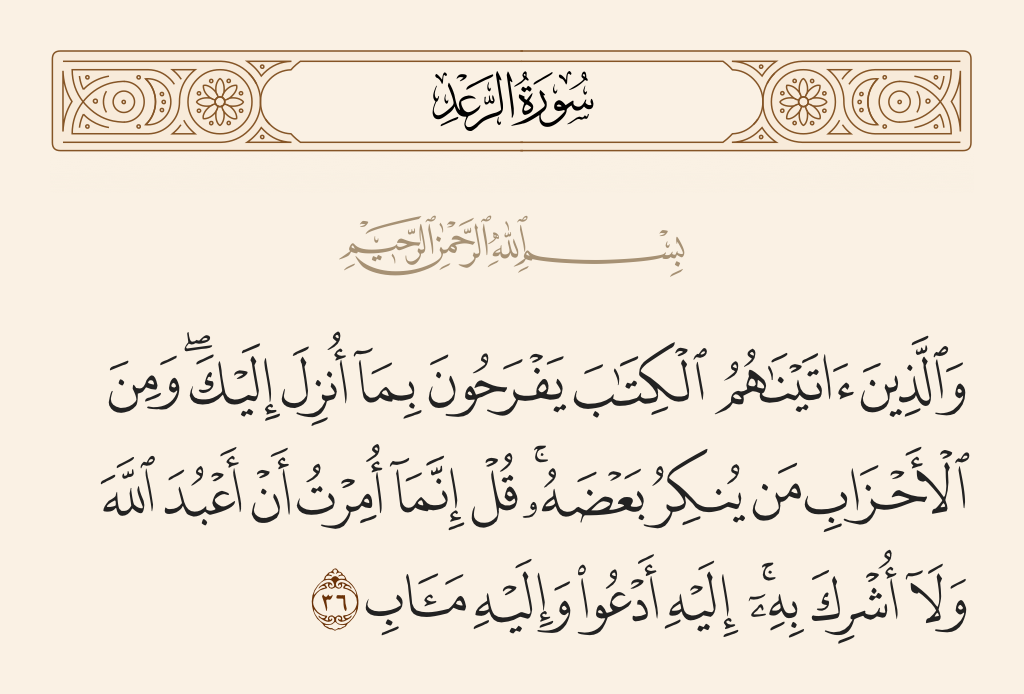 سُورَةُ الرَّعْدِ
بِسْمِ ٱللَّهِ ٱلرَّحْمَٰنِ ٱلرَّحِيمِ
وَٱلَّذِينَ ءَاتَيْنَٰهُمُ ٱلْكِتَٰبَ يَفْرَحُونَ بِمَآ أُنزِلَ إِلَيْكَ ۖ وَمِنَ
ٱلْأَحْزَابِ مَن يُنكِرُ بَعْضَهُۥ ۚ قُلْ إِنَّمَآ أُمِرْتُ أَنْ أَعْبُدَ ٱللَّهَ
وَلَآ أُشْرِكَ بِهِۦٓ ۚ إِلَيْهِ أَدْعُوا۟ وَإِلَيْهِ مَـَٔابِ ٣٦